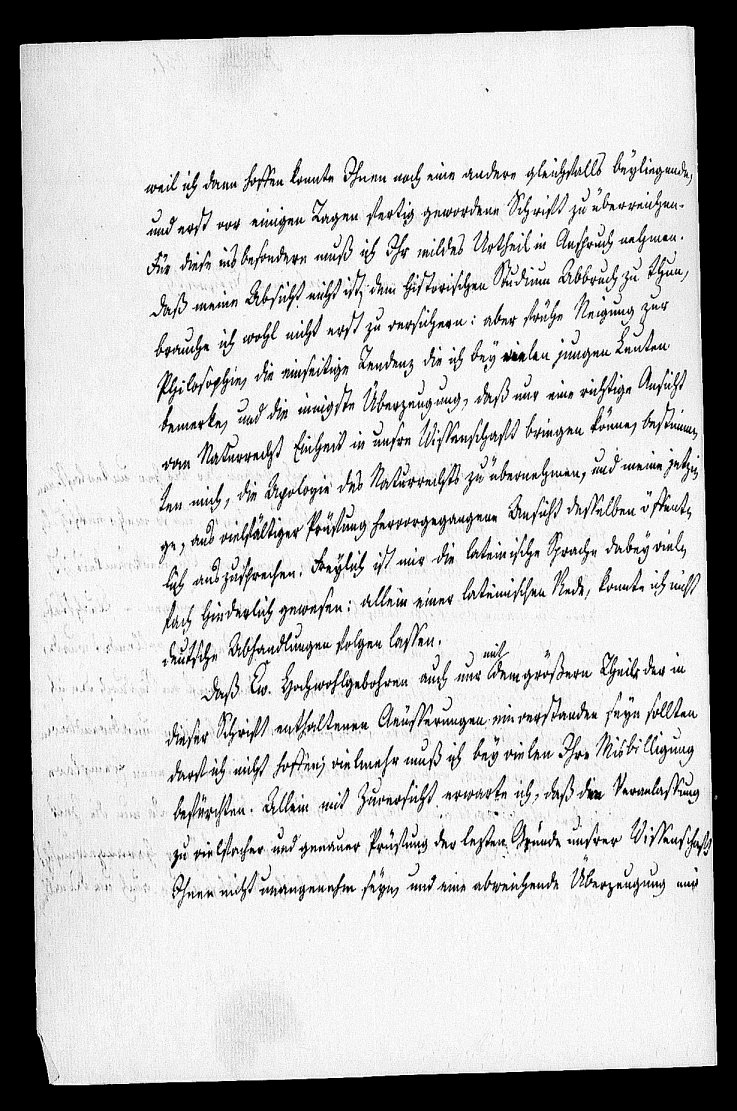 weil ich dann hoffen konnte Ihnen noch eine andere gleichfalls beyliegende,
und erst vor einigen Tagen fertig gewordene Schrift zu überreichen.
Für diese insbesondere muß ich Ihr mildes Urtheil in Anspruch nehmen.
Daß meine Absicht nicht ist, dem historischen Studium Abbruch zu thun,
brauche ich wohl nicht erst zu versichern: aber frühe Neigung zur
Philosophie, die einseitige Tendenz die ich bey vielen jungen Leuten
bemerke, und die innigste Überzeugung, daß nur eine richtige Ansicht
vom Naturrecht Einheit in unsre Wissenschaft bringen könne, bestimm-
ten mich, die Apologie des Naturrechts zu übernehmen, und meine jetzi-
ge, aus vielfältiger Prüfung hervorgegangene Ansicht desselben öffent-
lich auszusprechen. Freylich ist mir die lateinische Sprache dabey viel-
fach hinderlich gewesen: allein einer lateinischen Rede, konnte ich nicht
deutsche Abhandlungen folgen lassen.
Daß Ew. Hochwohlgebohren auch nur mit dem größern Theile der in
dieser Schrift enthaltenen Aeusserungen einverstanden seyn sollten
darf ich nicht hoffen; vielmehr muß ich bey vielen Ihre Misbilligung
befürchten. Allein mit Zuversicht erwarte ich, daß die Veranlassung
zu vielfacher und genauer Prüfung der lezten Gründe unsrer Wissenschaft
Ihnen nicht unangenehm seyn, und eine abweichende Überzeugung mir